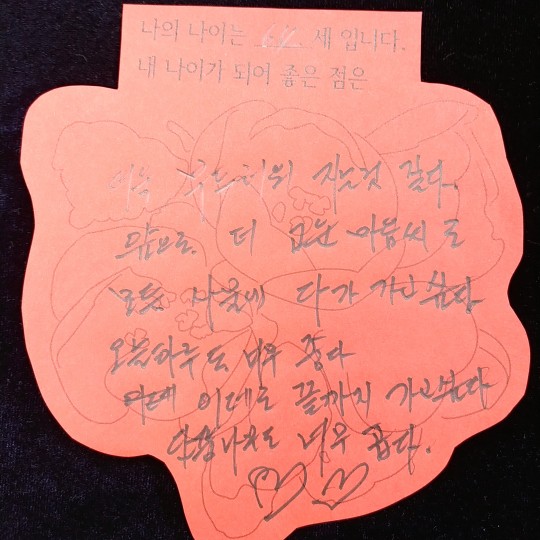 나의 나이는 64 세 입니다.
내 나이가 되어 좋은 점은
지는것 같다.
앞으로 더 고운 마음씨로
모든 사물에 다가 가고 싶다
오늘하루도 너무 좋다
이대로 끝까지 가고싶다
너무 곱다.